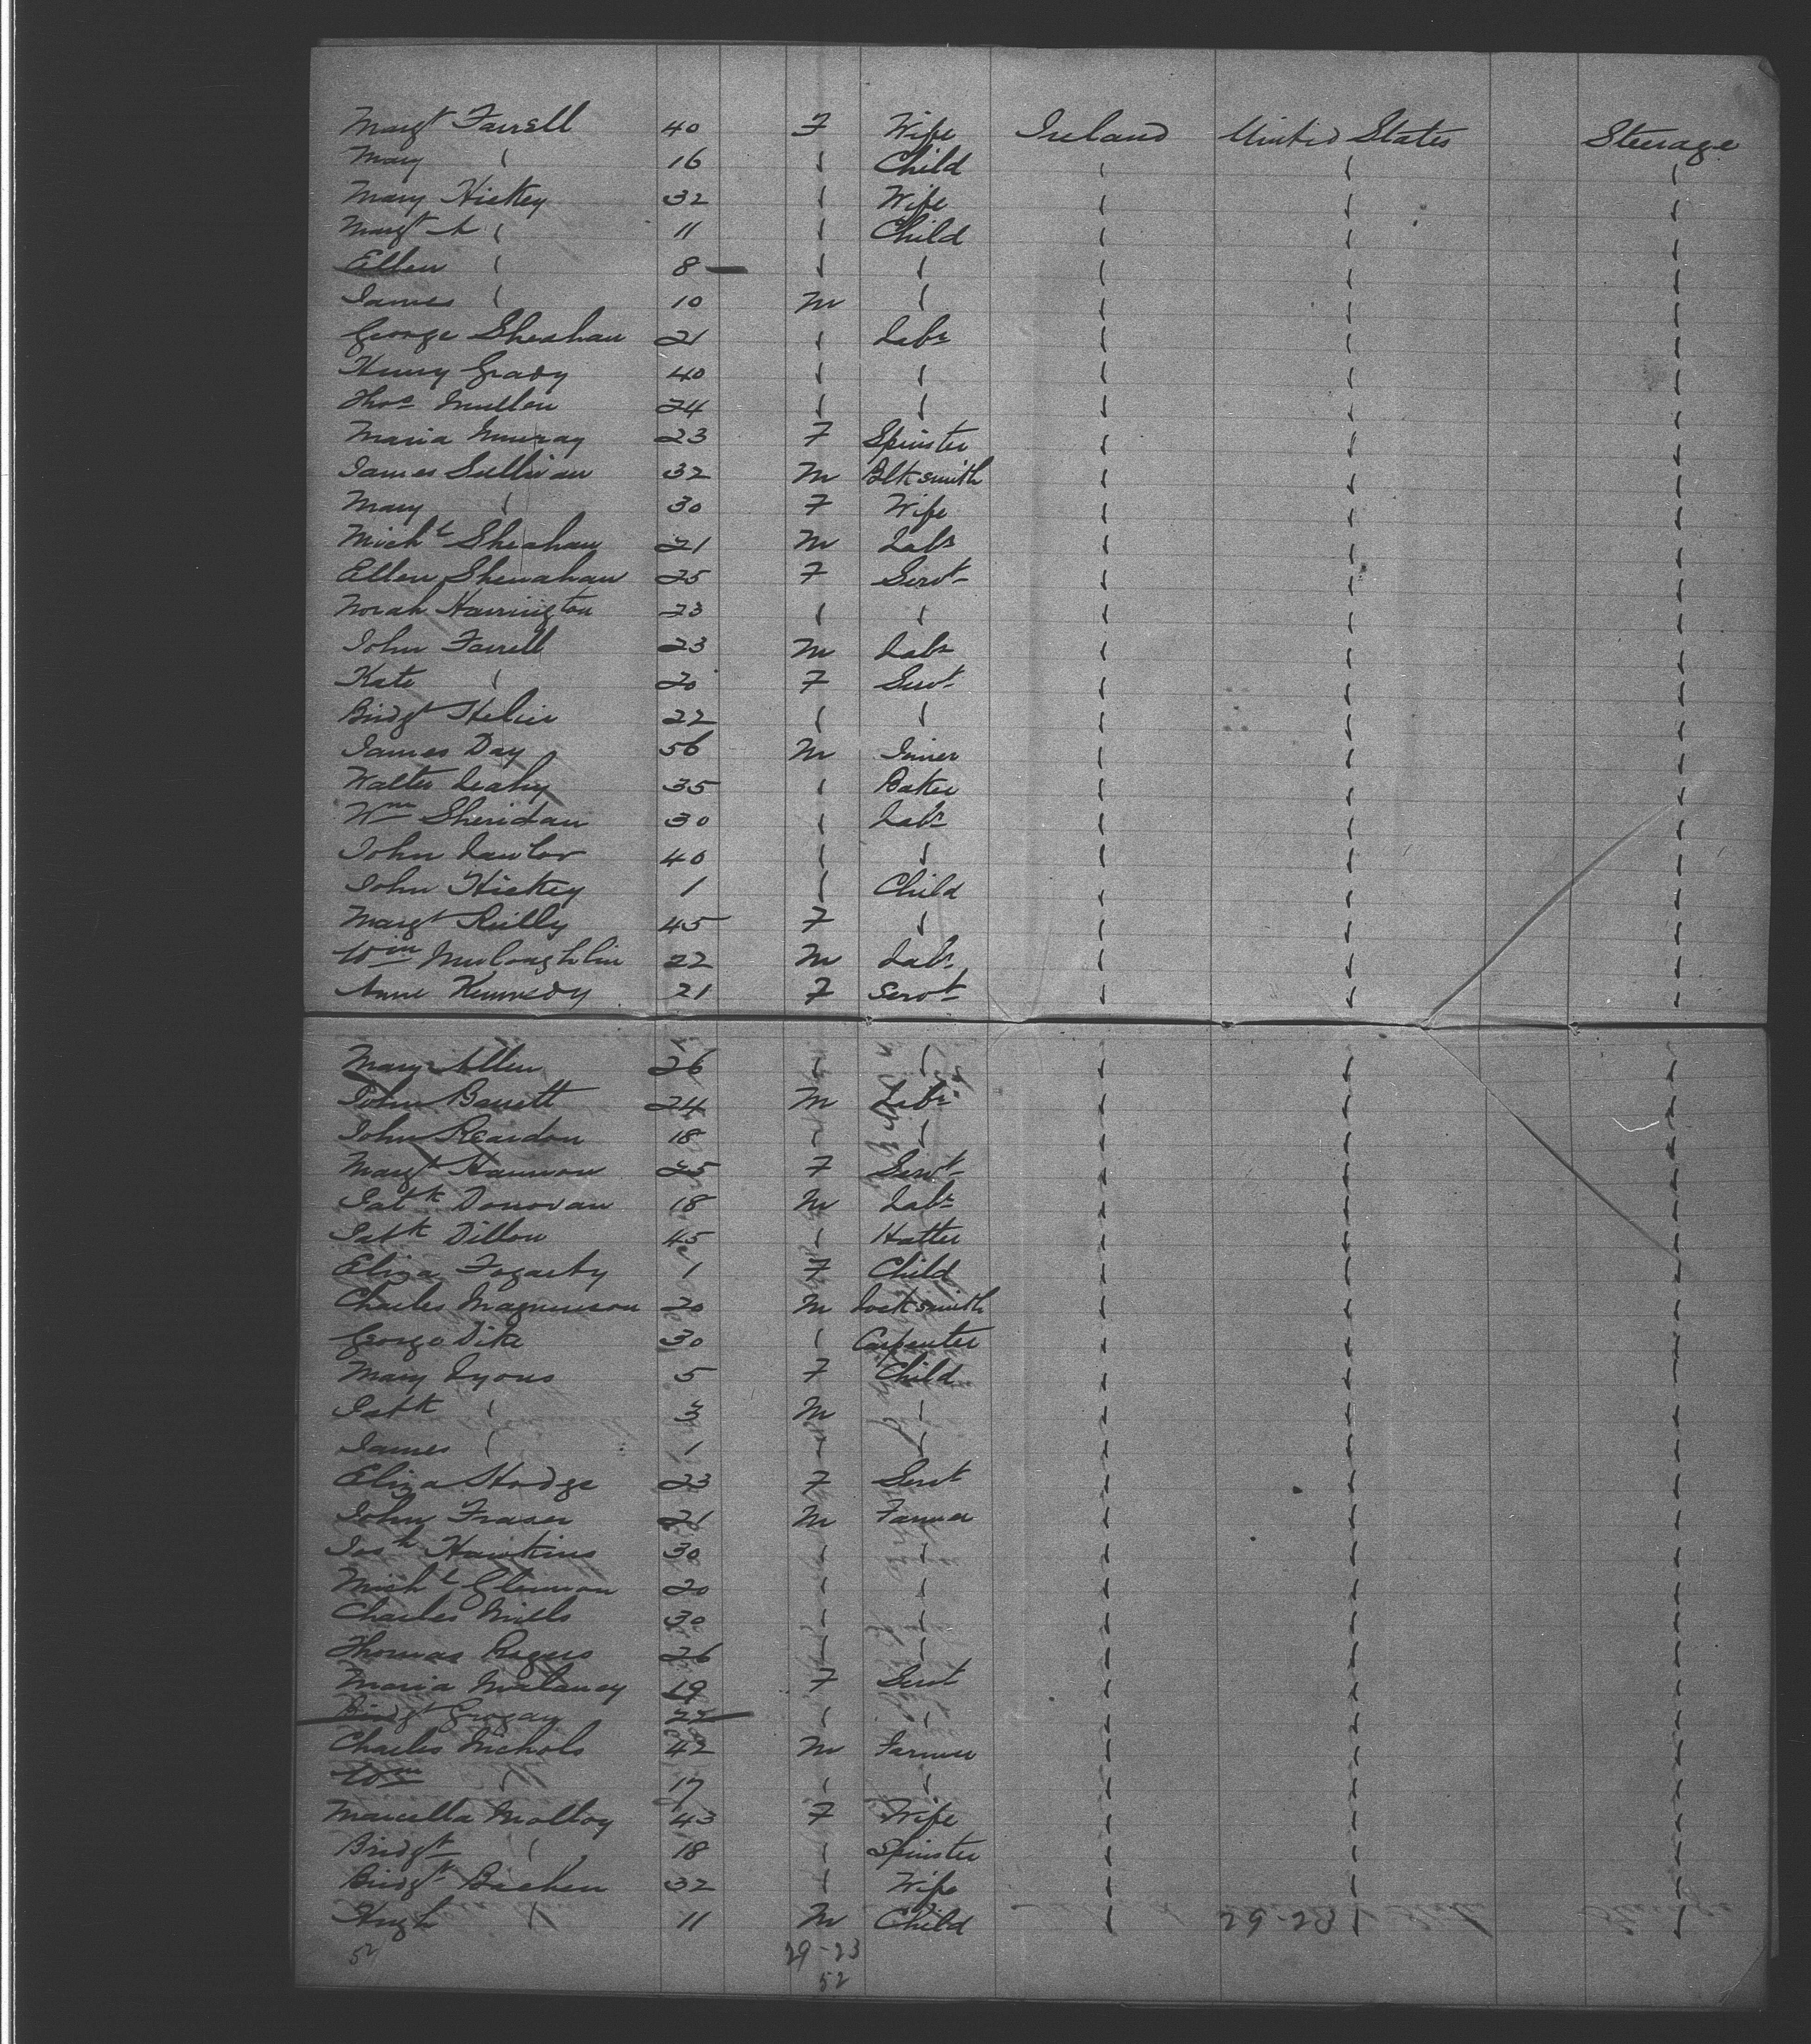 Margt Farrell 40 F Wife Ireland United States Steerage
Mary " 16 " Child " " "
Mary Hickey 32 " Wife " " "
Margt A " 11 " Child " " "
Ellen " 8 " " " " "
James " 10 M " " " "
George Sheahan 21 " Labr " " "
Henry Grady 40 " " " " "
Thos Mullen 24 " " " " "
Maria Murray 23 F Spinster " " "
James Sullivan 32 M Blksmith " " "
Mary " 30 F Wife " " "
Michl Sheahan 21 M Labr " " "
Ellen Shenahan 25 F Servt " " "
Norah Harrington 23 " " " " "
John Farrell 23 M Labr " " "
Kate " 20 F Servt " " "
Bridgt 22 " " " " "
James Day 56 M " " "
Walter Leahy 35 " Baker " " "
Wm Sheridan 30 " Labr " " "
John Lawlor 40 " " " " "
John Hickey 1 " Child " " "
Margt Reilly 45 F " " " "
Wm McLoaghlin 22 M Labr " " "
Anne Kennedy 21 F Servt " " "
Mary Allen 26 " " " " "
John Barrett 24 M Labr " " "
John Reardon 18 " " " " "
Margt Hannon 25 F Servt " " "
Patk Donovan 18 M Labr " " "
Patk Dillon 45 " Hatter " " "
Eliza Fogarty 1 F Child " " "
Charles Magnusson 20 M Locksmith " " "
George Dike 30 " Carpenter " " "
Mary Lyons 5 F Child " " "
Patk " 3 M " " " "
James " 1 " " " " "
Eliza Hodge 23 F Servt " " "
John Fraser 21 M Farmer " " "
Josh Hawkins 30 " " " " "
Michl Glennon 20 " " " " "
Charles Mills 30 " " " " "
Thomas Rogers 26 " " " " "
Maria Mulaney 19 F Servt " " "
Bridgt Grogan 22 " " " " "
Charles Nichols 42 M Farmer " " "
Wm " 17 " " " " "
Marcella Molloy 43 F Wife " " "
Bridgt " 18 " Spinster " " "
Bridgt 32 " Wife " " "
Hugh " 11 M Child " 29-23 " "
52 29-23
52